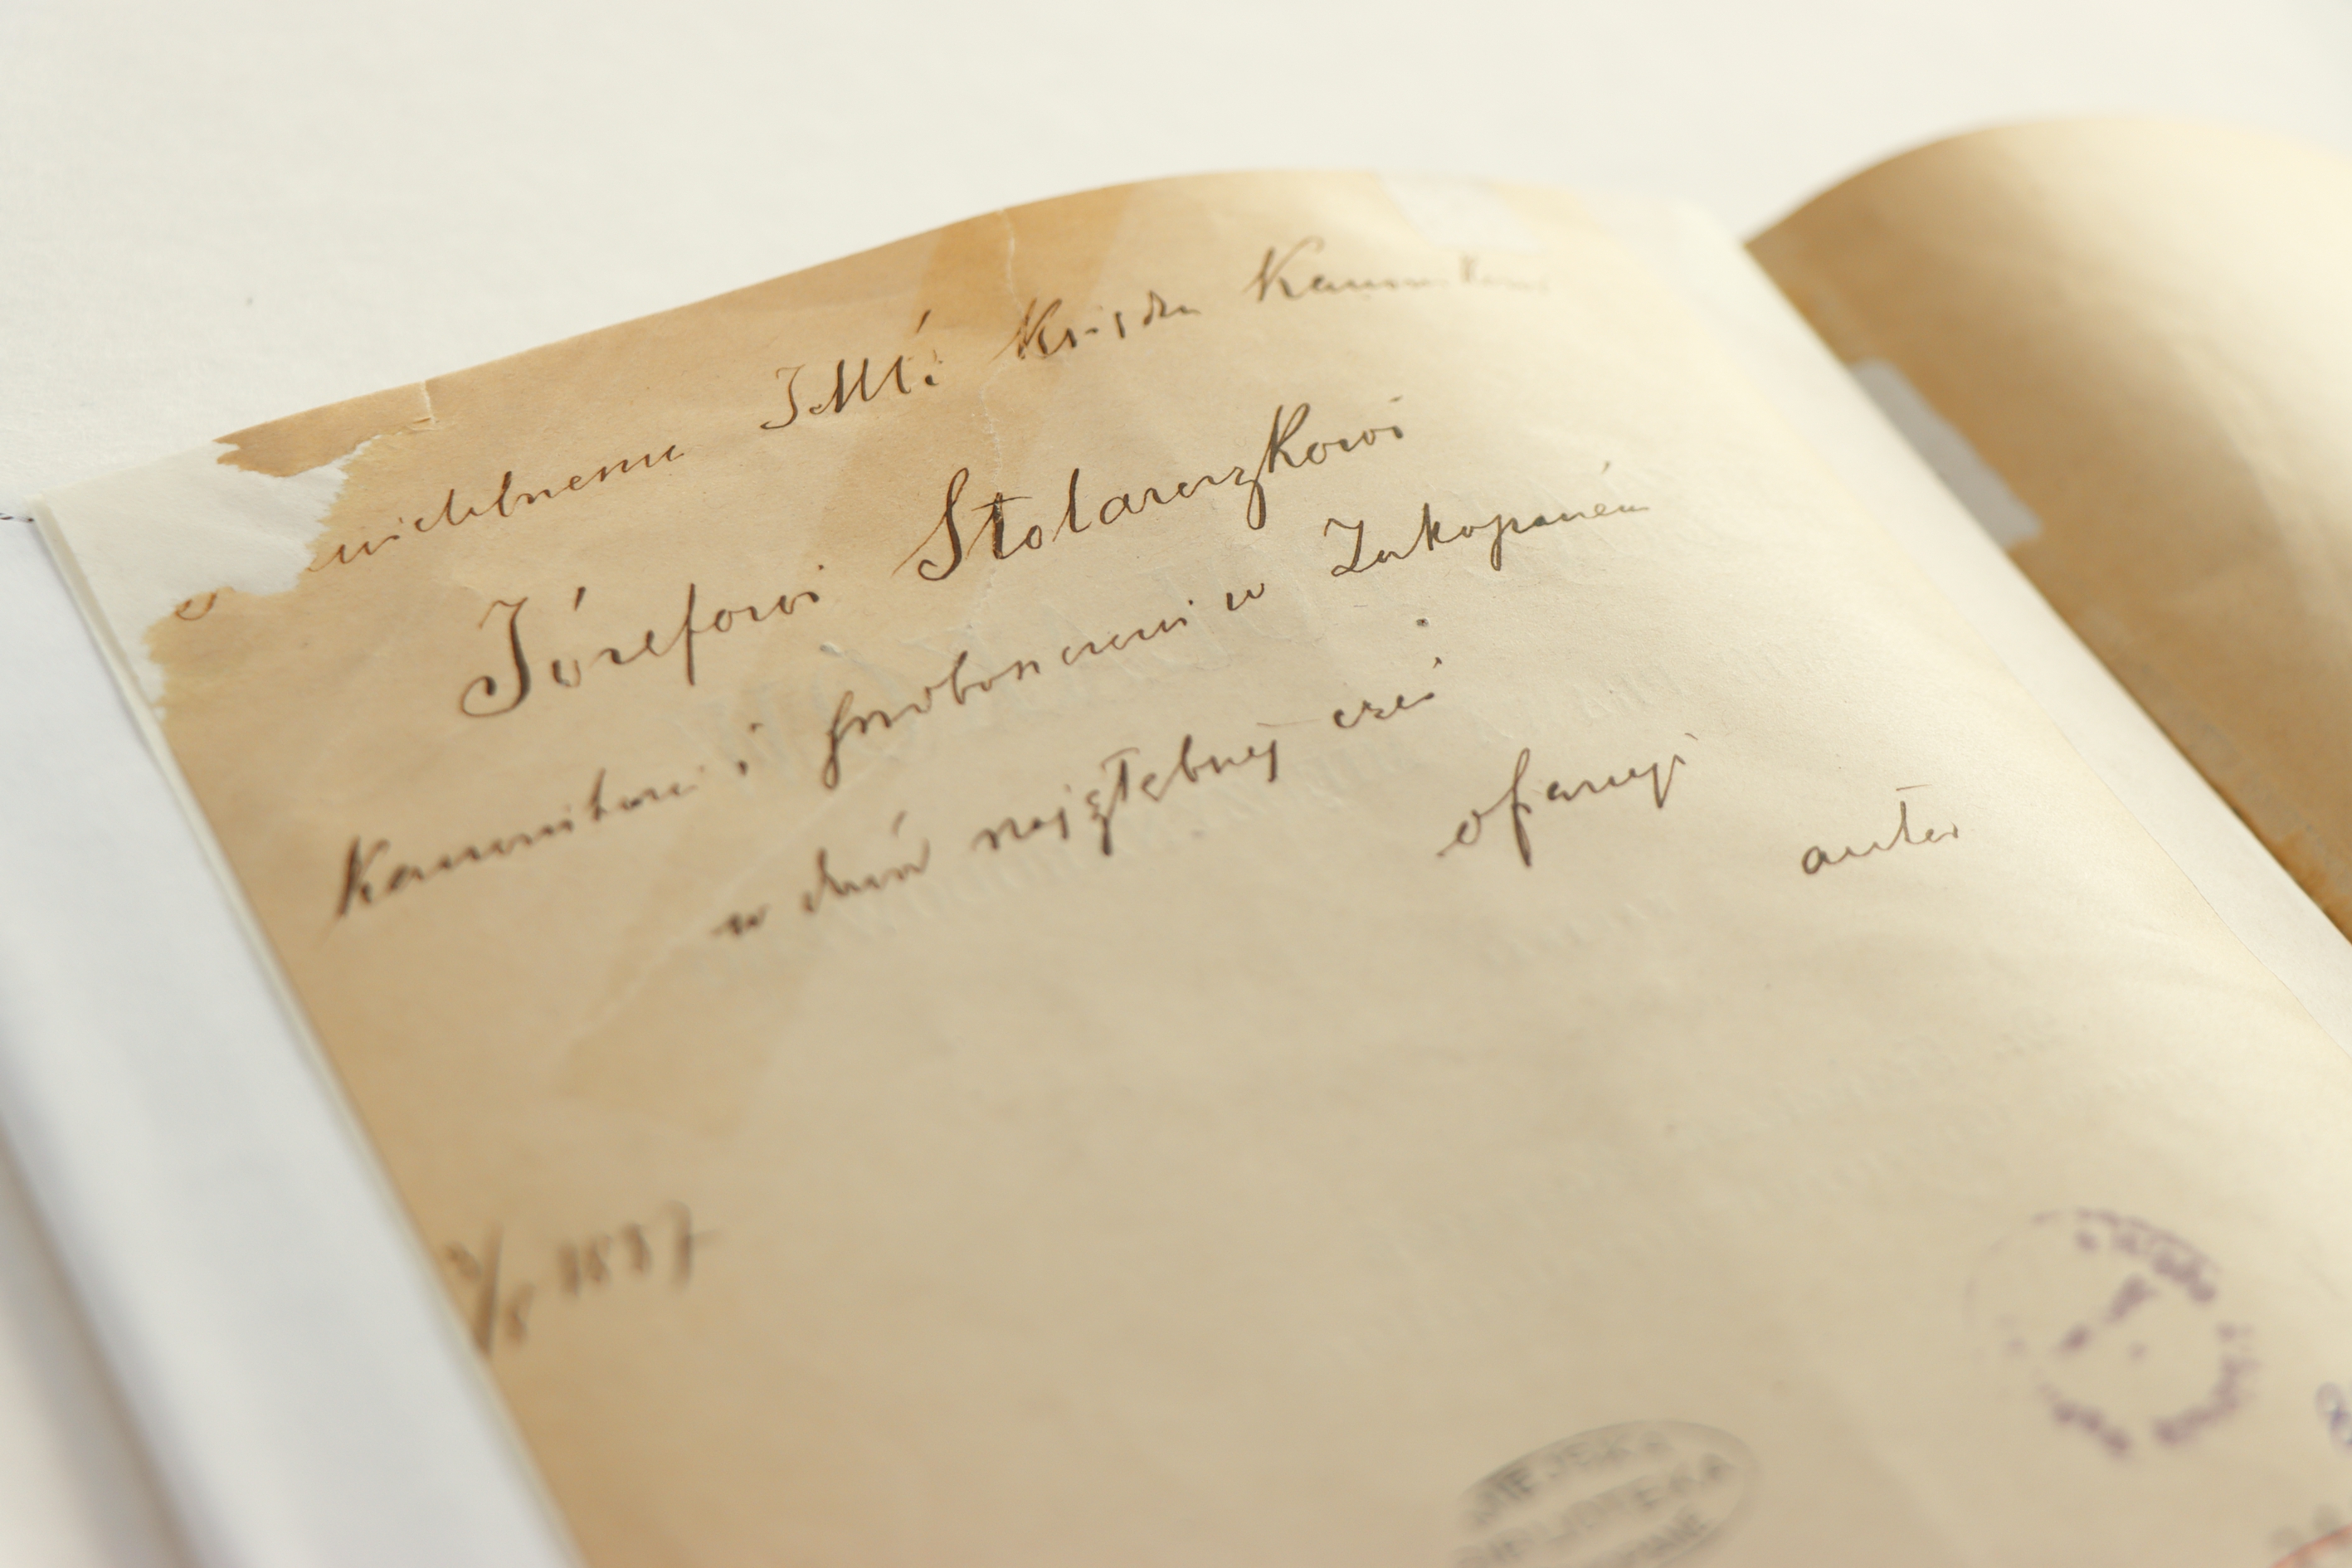 wielebnemu JMć: Księdzu
Józefowi Stolarczykowi
Kanonikowi i proboszczowi w Zakopaném
w dowód najgłębszej czci
ofiaruje
autor
1887